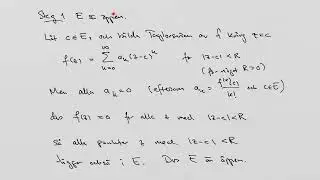 Steg 1 E är öppen.
Låt c∈E, och bilda Taylorserien av f kring z=c
f(z) = ∑_{k=0}^{∞} a_k (z-c)^k för |z-c| < R
(för något R>0)
Men alla a_k = 0 (eftersom a_k = f^{(k)}(c)/k! och c∈E)
dvs f(z) = 0 för alla z med |z-c| < R
så alla punkter z med |z-c| < R
ligger också i E. Dvs E är öppen.